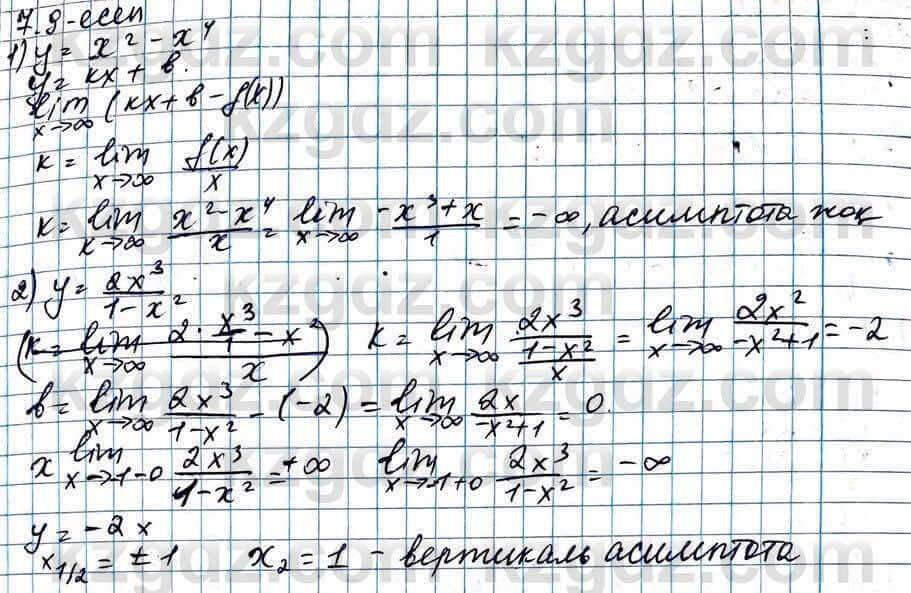 7.9-есеп
1) y = x² - x⁴
y = kx + b.
lim x→∞ (kx + b - f(x))
k = lim x→∞ f(x)/x
k = lim x→∞ (x² - x⁴)/x = lim x→∞ (-x³ + x)/1 = -∞, асимптота жоқ
2) y = 2x³/(1 - x²)
(k = lim x→∞ (2 · x³/1 - x²)/x) k = lim x→∞ (2x³/(1 - x²))/x = lim x→∞ 2x²/(-x² + 1) = -2
b = lim x→∞ 2x³/(1 - x²) - (-2) = lim x→∞ 2x/(-x² + 1) = 0.
x lim x→1-0 2x³/(1 - x²) = +∞ lim x→-1+0 2x³/(1 - x²) = -∞
y = -2x
x₁/₂ = ±1 x₂ = 1 - вертикаль асимптота
kzgdz.com